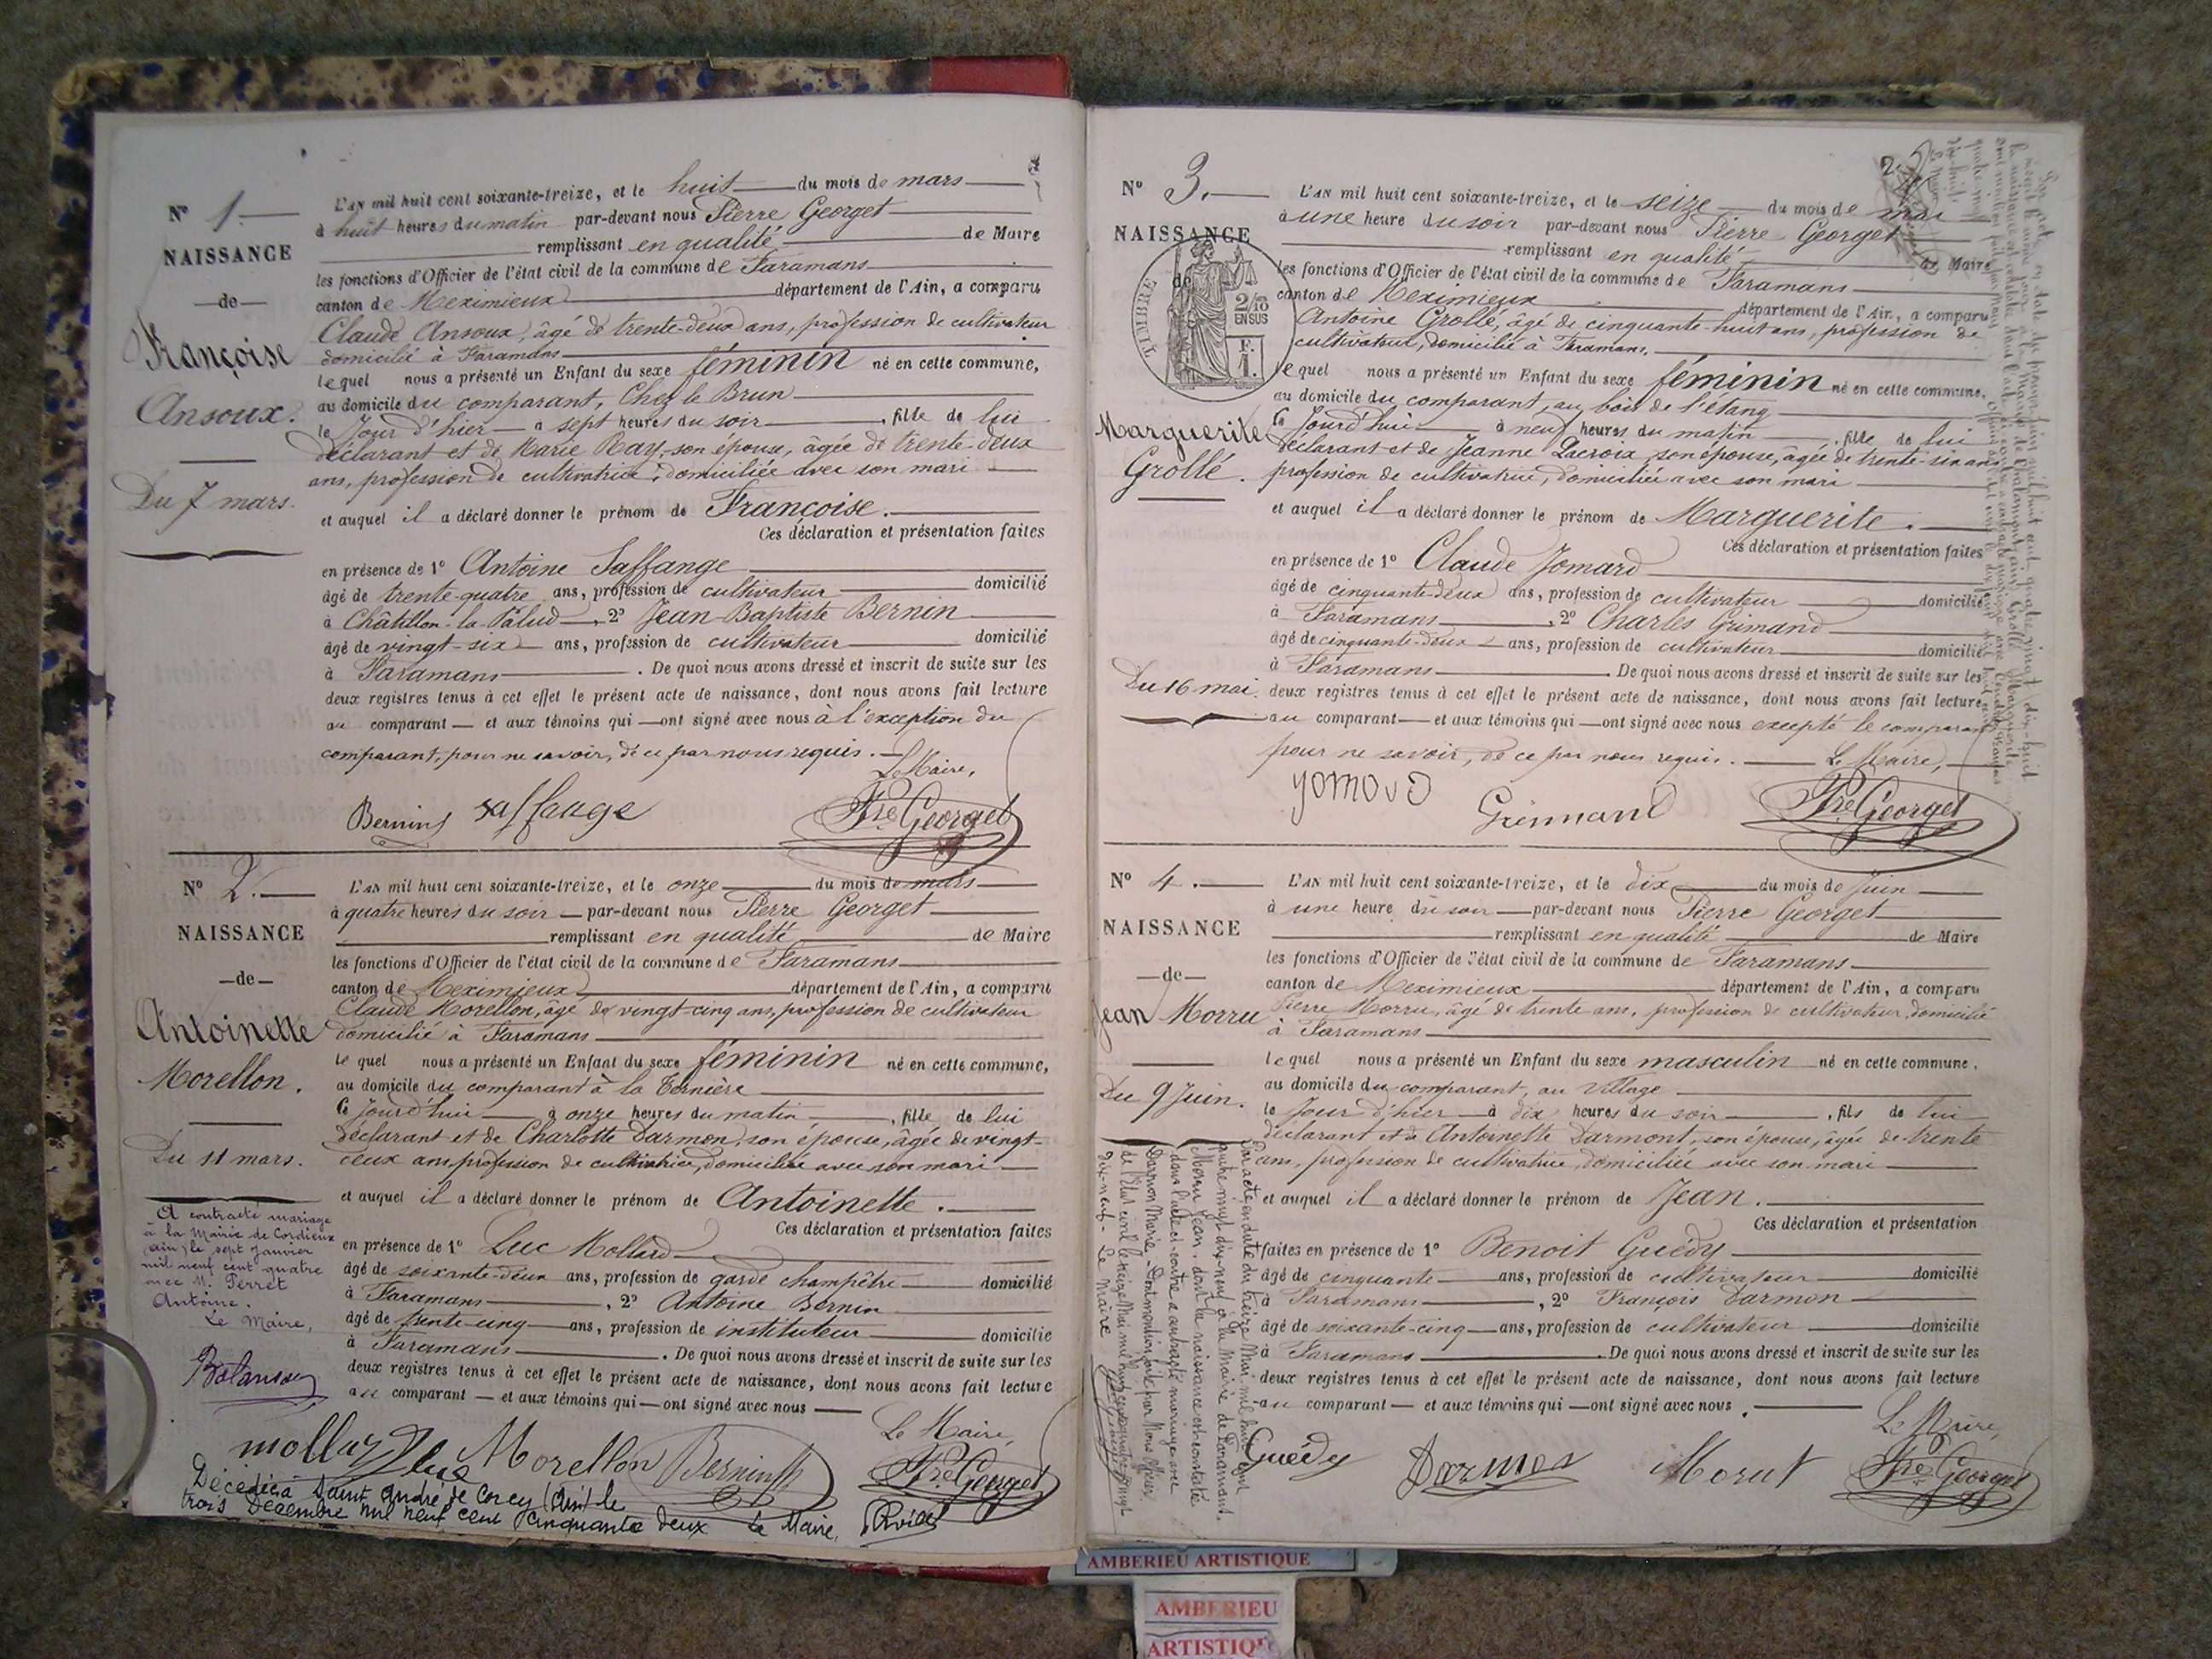 N° 1.
NAISSANCE
de
Françoise
Ansoux.
Du 7 mars.
L'AN mil huit cent soixante-treize, et le huit du mois de mars
à huit heures du matin par-devant nous Pierre Georget
remplissant en qualité de Maire
les fonctions d'Officier de l'état civil de la commune de Faramans
canton de Meximieux département de l'Ain, a comparu
Claude Ansoux, âgé de trente-deux ans, profession de cultivateur
domicilié à Faramans
lequel nous a présenté un Enfant du sexe féminin né en cette commune,
au domicile du comparant, Chez le Brun
le Jour d'hier à sept heures du soir, fille de lui
déclarant et de Marie Ray, son épouse, âgée de trente-deux
ans, profession de cultivatrice, domiciliée avec son mari
et auquel il a déclaré donner le prénom de Françoise.
Ces déclaration et présentation faites
en présence de 1° Antoine Saffange
âgé de trente-quatre ans, profession de cultivateur domicilié
à Châtillon-la-Palud, 2° Jean-Baptiste Bernin
âgé de vingt-six ans, profession de cultivateur domicilié
à Faramans. De quoi nous avons dressé et inscrit de suite sur les
deux registres tenus à cet effet le présent acte de naissance, dont nous avons fait lecture
au comparant et aux témoins qui ont signé avec nous à l'exception du
comparant, pour ne savoir, de ce par nous requis.
Le Maire,
Bernin saffange Pre Georget
N° 2.
NAISSANCE
de
Antoinette
Morellon.
Du 11 mars.
L'AN mil huit cent soixante-treize, et le onze du mois de mars
à quatre heures du soir par-devant nous Pierre Georget
remplissant en qualité de Maire
les fonctions d'Officier de l'état civil de la commune de Faramans
canton de Meximieux département de l'Ain, a comparu
Claude Morellon, âgé de vingt-cinq ans, profession de cultivateur
domicilié à Faramans
lequel nous a présenté un Enfant du sexe féminin né en cette commune,
au domicile du comparant à la
Ce Jourd'hui à onze heures du matin, fille de lui
déclarant et de Charlotte Darmon, son épouse, âgée de vingt-
deux ans, profession de cultivatrice, domiciliée avec son mari
et auquel il a déclaré donner le prénom de Antoinette.
Ces déclaration et présentation faites
en présence de 1° Luc Mollard
âgé de soixante-deux ans, profession de garde champêtre domicilié
à Faramans, 2° Antoine Bernin
âgé de trente-cinq ans, profession de instituteur domicilié
à Faramans. De quoi nous avons dressé et inscrit de suite sur les
deux registres tenus à cet effet le présent acte de naissance, dont nous avons fait lecture
au comparant et aux témoins qui ont signé avec nous
Le Maire,
A contracté mariage
à la Mairie de Cordieux
(Ain) le sept janvier
mil neuf cent quatre
avec M. Perret
Antoine.
Le Maire,
mollard luc Morellon Bernin Pre Georget
Décédée à Saint André de Corcy (Ain) le
trois Décembre mil neuf cent cinquante deux Le Maire,
N° 3.
NAISSANCE
de
TIMBRE
2/10
EN SUS
F.
1.
Marguerite
Grollé.
Du 16 mai.
L'AN mil huit cent soixante-treize, et le seize du mois de mai
à une heure du soir par-devant nous Pierre Georget
remplissant en qualité de Maire
les fonctions d'Officier de l'état civil de la commune de Faramans
canton de Meximieux département de l'Ain, a comparu
Antoine Grollé, âgé de cinquante-huit ans, profession de
cultivateur, domicilié à Faramans.
lequel nous a présenté un Enfant du sexe féminin né en cette commune,
au domicile du comparant, au bois de l'étang
Ce Jourd'hui à neuf heures du matin, fille de lui
déclarant et de Jeanne Lacroix, son épouse, âgée de trente-six ans
profession de cultivatrice, domiciliée avec son mari
et auquel il a déclaré donner le prénom de Marguerite.
Ces déclaration et présentation faites
en présence de 1° Claude Jomard
âgé de cinquante-deux ans, profession de cultivateur domicilié
à Faramans, 2° Charles Grimand
âgé de cinquante-deux ans, profession de cultivateur domicilié
à Faramans. De quoi nous avons dressé et inscrit de suite sur les
deux registres tenus à cet effet le présent acte de naissance, dont nous avons fait lecture
au comparant et aux témoins qui ont signé avec nous excepté le comparant
pour ne savoir, de ce par nous requis. Le Maire,
Grimand Pre Georget
N° 4.
NAISSANCE
de
Jean Morru
Du 9 Juin.
L'AN mil huit cent soixante-treize, et le dix du mois de Juin
à une heure du soir par-devant nous Pierre Georget
remplissant en qualité de Maire
les fonctions d'Officier de l'état civil de la commune de Faramans
canton de Meximieux département de l'Ain, a comparu
Pierre Morru, âgé de trente ans, profession de cultivateur, domicilié
à Faramans
lequel nous a présenté un Enfant du sexe masculin né en cette commune,
au domicile du comparant, au Village
le Jour d'hier à dix heures du soir, fils de lui
déclarant et de Antoinette Darmont, son épouse, âgée de trente
ans, profession de cultivatrice, domiciliée avec son mari
et auquel il a déclaré donner le prénom de Jean.
Ces déclaration et présentation
faites en présence de 1° Benoit Guédy
âgé de cinquante ans, profession de cultivateur domicilié
à Faramans, 2° François Darmon
âgé de soixante-cinq ans, profession de cultivateur domicilié
à Faramans. De quoi nous avons dressé et inscrit de suite sur les
deux registres tenus à cet effet le présent acte de naissance, dont nous avons fait lecture
au comparant et aux témoins qui ont signé avec nous.
Le Maire,
Guédy Darmon Morut Pre Georget
AMBERIEU ARTISTIQUE
AMBERIEU
ARTISTIQUE